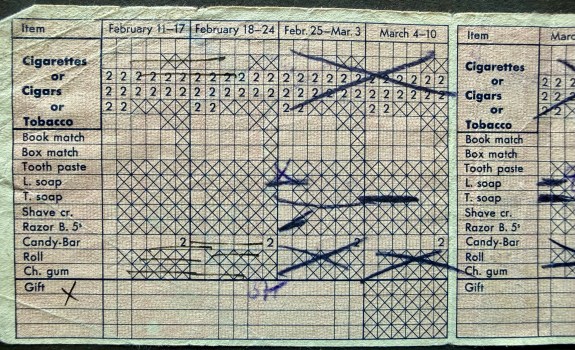 Item February 11-17 February 18-24 Febr. 25-Mar. 3 March 4-10 Item
Cigarettes Cigarettes
or 2 2 2 2 2 2 2 2 2 2 2 2 2 2 2 2 2 2 2 2 2 2 2 2 or 2 2
Cigars 2 2 2 2 2 2 2 2 2 2 2 2 2 2 2 2 2 2 2 2 2 2 2 2 Cigars 2 2
or 2 2 2 2 2 2 2 2 or
Tobacco Tobacco
Book match Book match
Box match Box match
Tooth paste Tooth paste
L. soap L. soap
T. soap T. soap
Shave cr. Shave cr.
Razor B. 5ˢ Razor B. 5ˢ
Candy-Bar 2 2 2 2 Candy-Bar
Roll Roll
Ch. gum Ch. gum
Gift X Gift